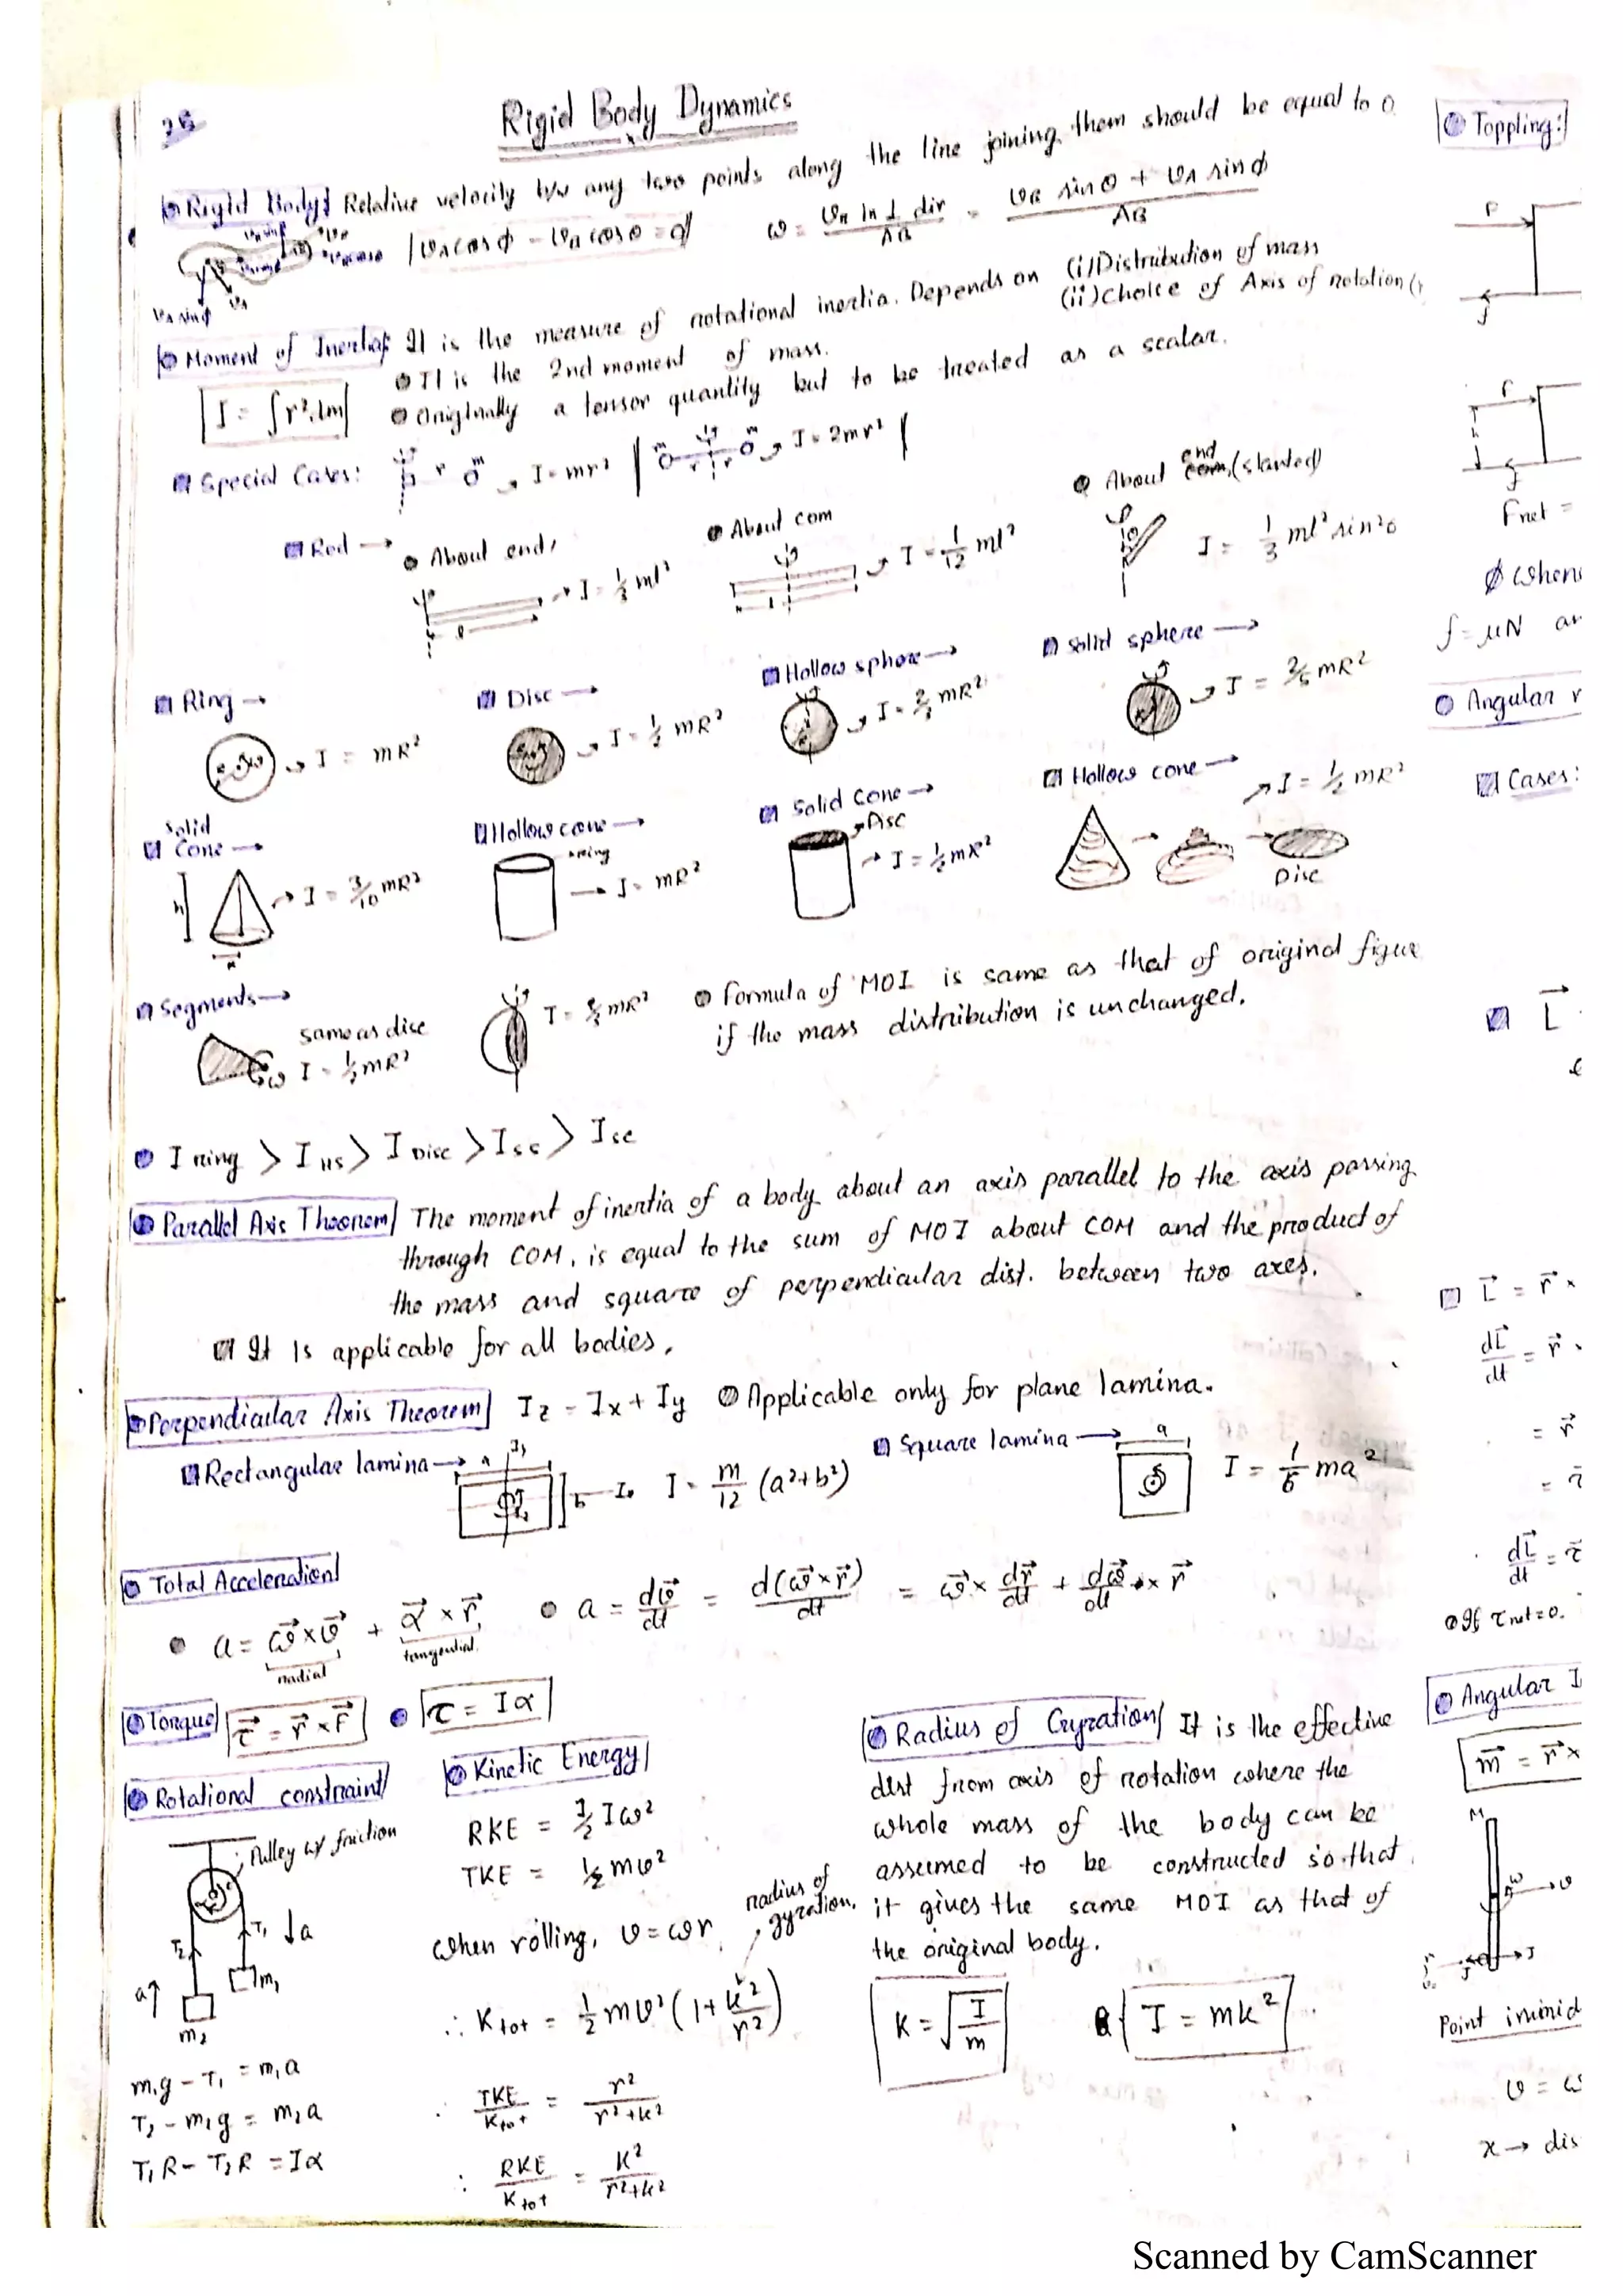 Rigid Body Dynamics
Rigid Body Relative velocity b/w any two points along the line joining them should be equal to 0.
vA cos ϕ - vB cos θ = 0
ω = vR in ⊥ dir / AB = vB sin θ + vA sin ϕ / AB
vA sin ϕ
vA
Moment of Inertia It is the measure of rotational inertia. Depends on (i) Distribution of mass
(ii) Choice of Axis of rotation
It is the 2nd moment of mass.
I = ∫r².dm
Originally a tensor quantity but to be treated as a scalar.
Special Cases: r m I = mr² | m r r m I = 2mr² |
Rod →
About end,
I = 1/3 ml²
l
About com
I = 1/12 ml²
About end (slanted)
I = 1/3 ml² sin²θ
Ring → I = mR²
Disc → I = 1/2 mR²
Hollow sphere → I = 2/3 mR²
Solid sphere → I = 2/5 mR²
Solid Cone → I = 3/10 mR²
h
Hollow cone → ring → I = mR²
Solid Cone → Disc → I = 1/2 mR²
Hollow cone → I = 1/2 mR²
Disc
Segments →
same as disc
ω I = 1/2 mR²
I = 2/3 mR²
Formula of MOI is same as that of original figure
if the mass distribution is unchanged.
I ring > I HS > I Disc > I ss > I sc
Parallel Axis Theorem The moment of inertia of a body about an axis parallel to the axis passing
through COM, is equal to the sum of MOI about COM and the product of
the mass and square of perpendicular dist. between two axes.
It is applicable for all bodies.
Perpendicular Axis Theorem Iz = Ix + Iy Applicable only for plane lamina.
Rectangular lamina → a b I = m/12 (a²+b²)
Square lamina → a I = 1/6 ma²
Total Acceleration
a = ω⃗ × v⃗ + α⃗ × r⃗
radial tangential
a = dv⃗/dt = d(ω⃗ × r⃗)/dt = ω⃗ × dr⃗/dt + dω⃗/dt × r⃗
Torque τ⃗ = r⃗ × F⃗ τ = Iα
Rotational constraint
Pulley w/ friction
T2 T1 ↓a
a↑ m1
m2
m1g - T1 = m1a
T2 - m2g = m2a
T1R - T2R = Iα
Kinetic Energy
RKE = 1/2 Iω²
TKE = 1/2 mv²
When rolling, v = ωr
radius of
gyration.
∴ Ktot = 1/2 mv² (1 + k²/r²)
∴ TKE/Ktot = r²/r²+k²
∴ RKE/Ktot = K²/r²+k²
Radius of Gyration It is the effective
dist from axis of rotation where the
whole mass of the body can be
assumed to be constructed so that
it gives the same MOI as that of
the original body.
K = √I/m I = mk²
Toppling:
F
f
F
h
f
Fnet =
f = μN
Angular
Cases:
L⃗
L⃗ = r⃗ ×
dL⃗/dt = r⃗
= r⃗
dL⃗/dt = τ⃗
If τnet = 0.
Angular I
m⃗ = r⃗ ×
M
ω → v
J
Point
v = ω
x → dis
Scanned by CamScanner